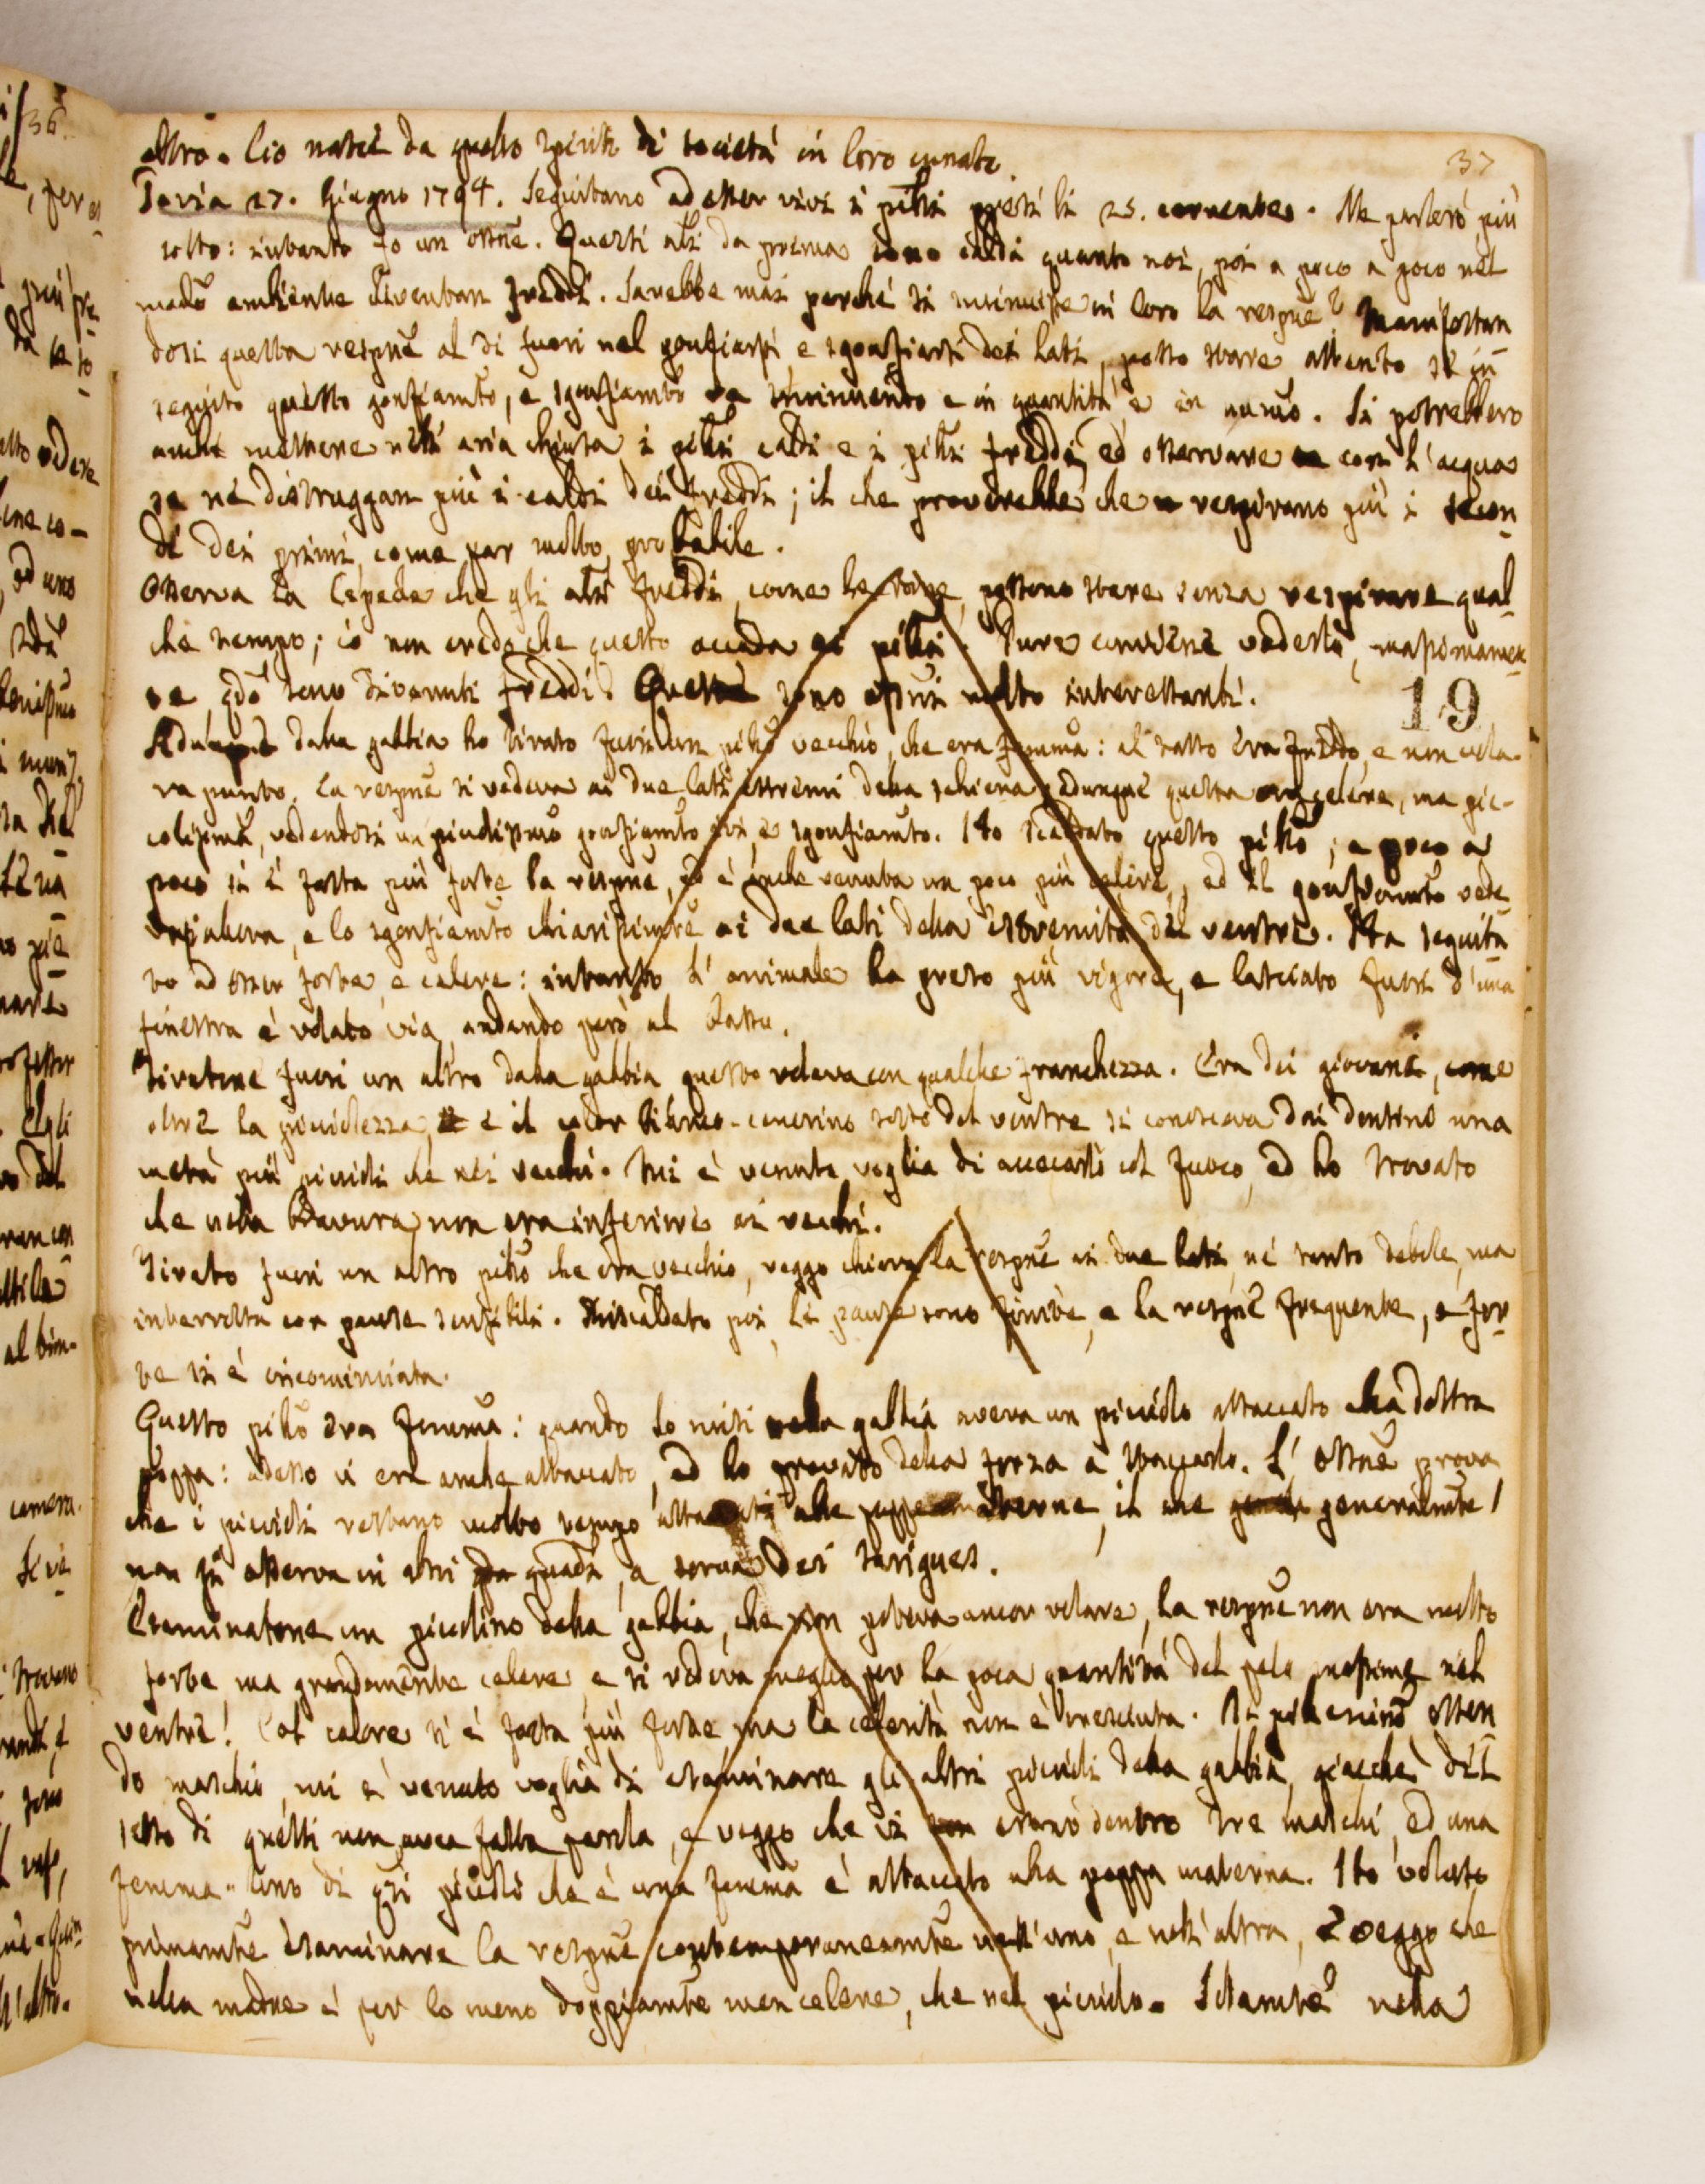 37
altro. Ciò nasce da quello spirito di società in loro innato.
Pavia 27. Giugno 1794. Seguitano ad esser vivi i pipñi presi li 25. corrente. Ne parlerò più
sotto: intanto fo un ossñe. Questi ali da prima sono caldi quanto noi, poi a poco a poco nel
medõ ambiente diventan freddi. Sarebbe mai perchè si minuisse in loro la respñe? Manifestan
dosi questa respñe al di fuori nel gonfiarsi, e sgonfiarsi dei lati, posso stare attento se in
seguito questo gonfiamto, e sgonfiamto va minuendo e in quantità e in numõ. Si potrebbero
anche mettere nell' aria chiusa i caldi e i freddi, ed osservare così l'acqua
se ne distruggan più i caldi dei freddi; il che proverebbe che respirano più i secon
di dei primi, come par molto probabile.
Osserva La Cepede che gli ali freddi, come le rane, possono stare senza respirare qual
che tempo; io non credo che questo accada ai. Pure conviene vederlo, massimamen
se qdõ sono divenuti freddi. Queste sono molto interessanti.
19
dalla gabbia ho tirato fuori un vecchio, che era femmã: al tatto era freddo, e non vola
va punto. La respñe si vedeva ai due lati estremi della schiena: questa celere, ma pic-
colissima, vedendosi un picciolissimo gonfiamto ivi, e sgonfiamto. Ho scaldato questo, a poco a
poco si è fatta più forte la respñe, ed è anche venuta un poco più celere, ed il gonfiamto vede
vasi allora, e lo sgonfiamto chiarissimte ai due lati della estremità del ventre. Ha seguita
to ad esser forte, e celere: intanto l'animale ha preso più vigore, e lasciato fuori d'una
finestra è volato via, andando però al basso.
Tiratone fuori un altro dalla gabbia questo volava con qualche franchezza. Era dei giovani, come
oltre la picciolezza, e il color bianco-cenerino sotto del ventre si conosceva dai dentini una
metà più piccioli che nei vecchi. Mi è venuta voglia di accecarlo col fuoco, ed ho trovato
che nella bravura non era inferiore ai vecchi.
Tirato fuori un altro che era vecchio, veggo chiara la respñe ai due lati, nè tanto debole, ma
interrotta con pause sensibili. Riscaldato poi, le pause sono finite, e la respñe frequente, e for
te si è incominciata.
Questo era femmã: quando lo misi nella gabbia aveva un picciolo attaccato alla destra
poppa: adesso vi era anche attaccato, ed ho provato della forza a staccarlo. L'ossñe prova
che i piccioli restano molto tempo attaccati alle poppe materne, il che generalmte
non si osserva in altri quadi, a riserva dei Sarigues.
Esaminatone un picciolino della gabbia, che non poteva ancor volare, la respñe non era molto
forte ma grandemente celere, e si vedeva meglio per la poca quantità del pelo massime nel
ventre. Col calore si è fatta più forte ma la celerità non è cresciuta. Il essen
do maschio, mi è venuto voglia di esaminare gli altri piccioli della gabbia, giacchè del
sesso di questi non avea fatta parola, e veggo che vi erano dentro tre maschi, ed una
femmina. Uno di qti piccioli che è una femmã è attaccato alla poppa materna. Ho voluto
primamte esaminare la respñe contemporaneamte nell'uno, e nell'altra, e veggo che
nella madre è per lo meno doppiamte men celere, che nel picciolo. nella